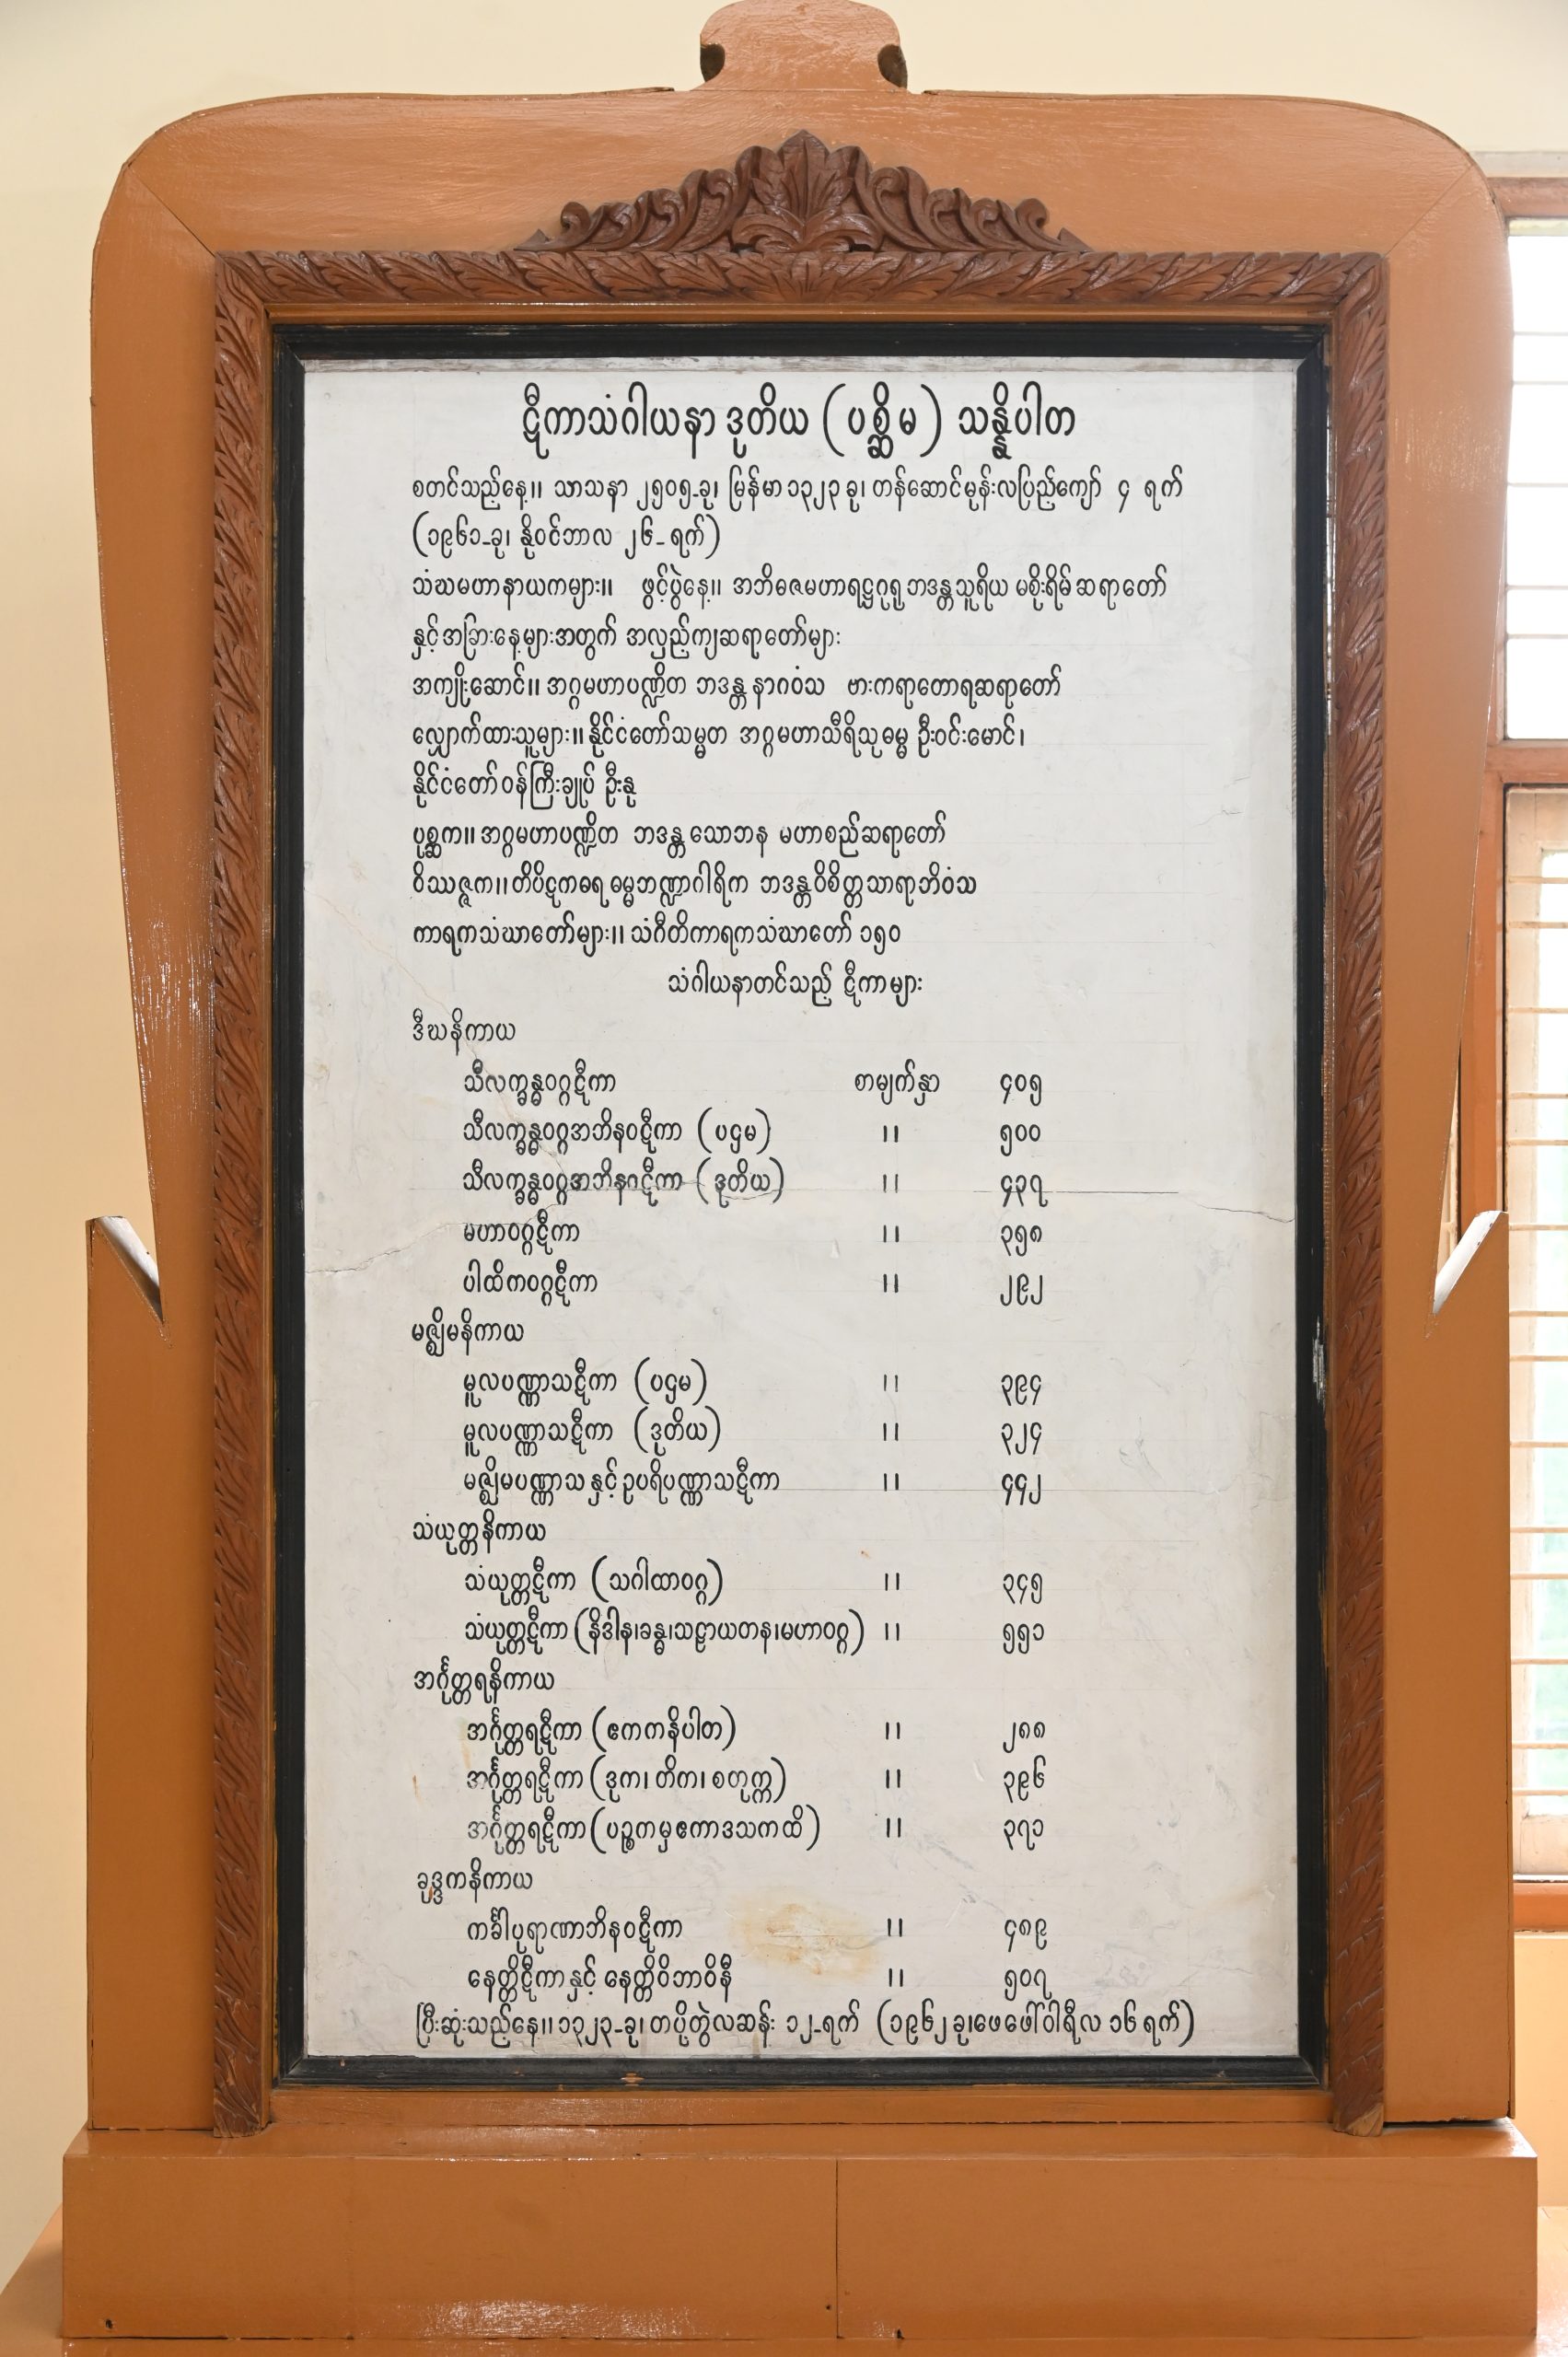 ဋီကာသံဂါယနာ ဒုတိယ (ပစ္ဆိမ) သန္နိပါတ
စတင်သည့်နေ့။ သာသနာ ၂၅၀၅-ခု၊ မြန်မာ ၁၃၂၃ ခု၊ တန်ဆောင်မုန်းလပြည့်ကျော် ၄ ရက်
(၁၉၆၁-ခု၊ နိုဝင်ဘာလ ၂၆-ရက်)
သံဃမဟာနာယကများ။ ဖွင့်ပွဲနေ့။ အဘိဓဇမဟာရဋ္ဌဂုရု ဘဒန္တသူရိယ မစိုးရိမ်ဆရာတော်
နှင့်အခြားနေ့များအတွက် အလှည့်ကျဆရာတော်များ
အကျိုးဆောင်။ အဂ္ဂမဟာပဏ္ဍိတ ဘဒန္တ နာဂဝံသ ဗားကရာတောရဆရာတော်
လျှောက်ထားသူများ။ နိုင်ငံတော်သမ္မတ အဂ္ဂမဟာသီရိသုဓမ္မ ဦးဝင်းမောင်၊
နိုင်ငံတော်ဝန်ကြီးချုပ် ဦးနု
ပုစ္ဆက။ အဂ္ဂမဟာပဏ္ဍိတ ဘဒန္တ သောဘန မဟာစည်ဆရာတော်
ဝိဿဇ္ဇက။ တိပိဋကဓရ ဓမ္မဘဏ္ဍာဂါရိက ဘဒန္တဝိစိတ္တသာရာဘိဝံသ
ကာရကသံဃာတော်များ။ သံဂီတိကာရကသံဃာတော် ၁၅၀
သံဂါယနာတင်သည့် ဋီကာများ
ဒီဃနိကာယ
သီလက္ခန္ဓဝဂ္ဂဋီကာ စာမျက်နှာ ၄၀၅
သီလက္ခန္ဓဝဂ္ဂအဘိနဝဋီကာ (ပဌမ) ။ ၅၀၀
သီလက္ခန္ဓဝဂ္ဂအဘိနဝဋီကာ (ဒုတိယ) ။ ၄၃၇
မဟာဝဂ္ဂဋီကာ ။ ၃၅၈
ပါထိကဝဂ္ဂဋီကာ ။ ၂၉၂
မဇ္ဈိမနိကာယ
မူလပဏ္ဏာသဋီကာ (ပဌမ) ။ ၃၉၄
မူလပဏ္ဏာသဋီကာ (ဒုတိယ) ။ ၃၂၄
မဇ္ဈိမပဏ္ဏာသ နှင့် ဥပရိပဏ္ဏာသဋီကာ ။ ၄၄၂
သံယုတ္တနိကာယ
သံယုတ္တဋီကာ (သဂါထာဝဂ္ဂ) ။ ၃၄၅
သံယုတ္တဋီကာ (နိဒါန၊ခန္ဓ၊သဠာယတန၊မဟာဝဂ္ဂ) ။ ၅၅၁
အင်္ဂုတ္တရနိကာယ
အင်္ဂုတ္တရဋီကာ (ဧကကနိပါတ) ။ ၂၈၈
အင်္ဂုတ္တရဋီကာ (ဒုက၊ တိက၊ စတုက္က) ။ ၃၉၆
အင်္ဂုတ္တရဋီကာ (ပဉ္စကမှ ဧကာဒသကထိ) ။ ၃၇၁
ခုဒ္ဒကနိကာယ
ကင်္ခါပုရာဏာဘိနဝဋီကာ ။ ၄၈၉
နေတ္တိဋီကာနှင့် နေတ္တိဝိဘာဝိနီ ။ ၅၀၇
ပြီးဆုံးသည့်နေ့။ ၁၃၂၃-ခု၊ တပို့တွဲလဆန်း ၁၂-ရက် (၁၉၆၂ ခု၊ဖေဖေါ်ဝါရီလ ၁၆ ရက်)